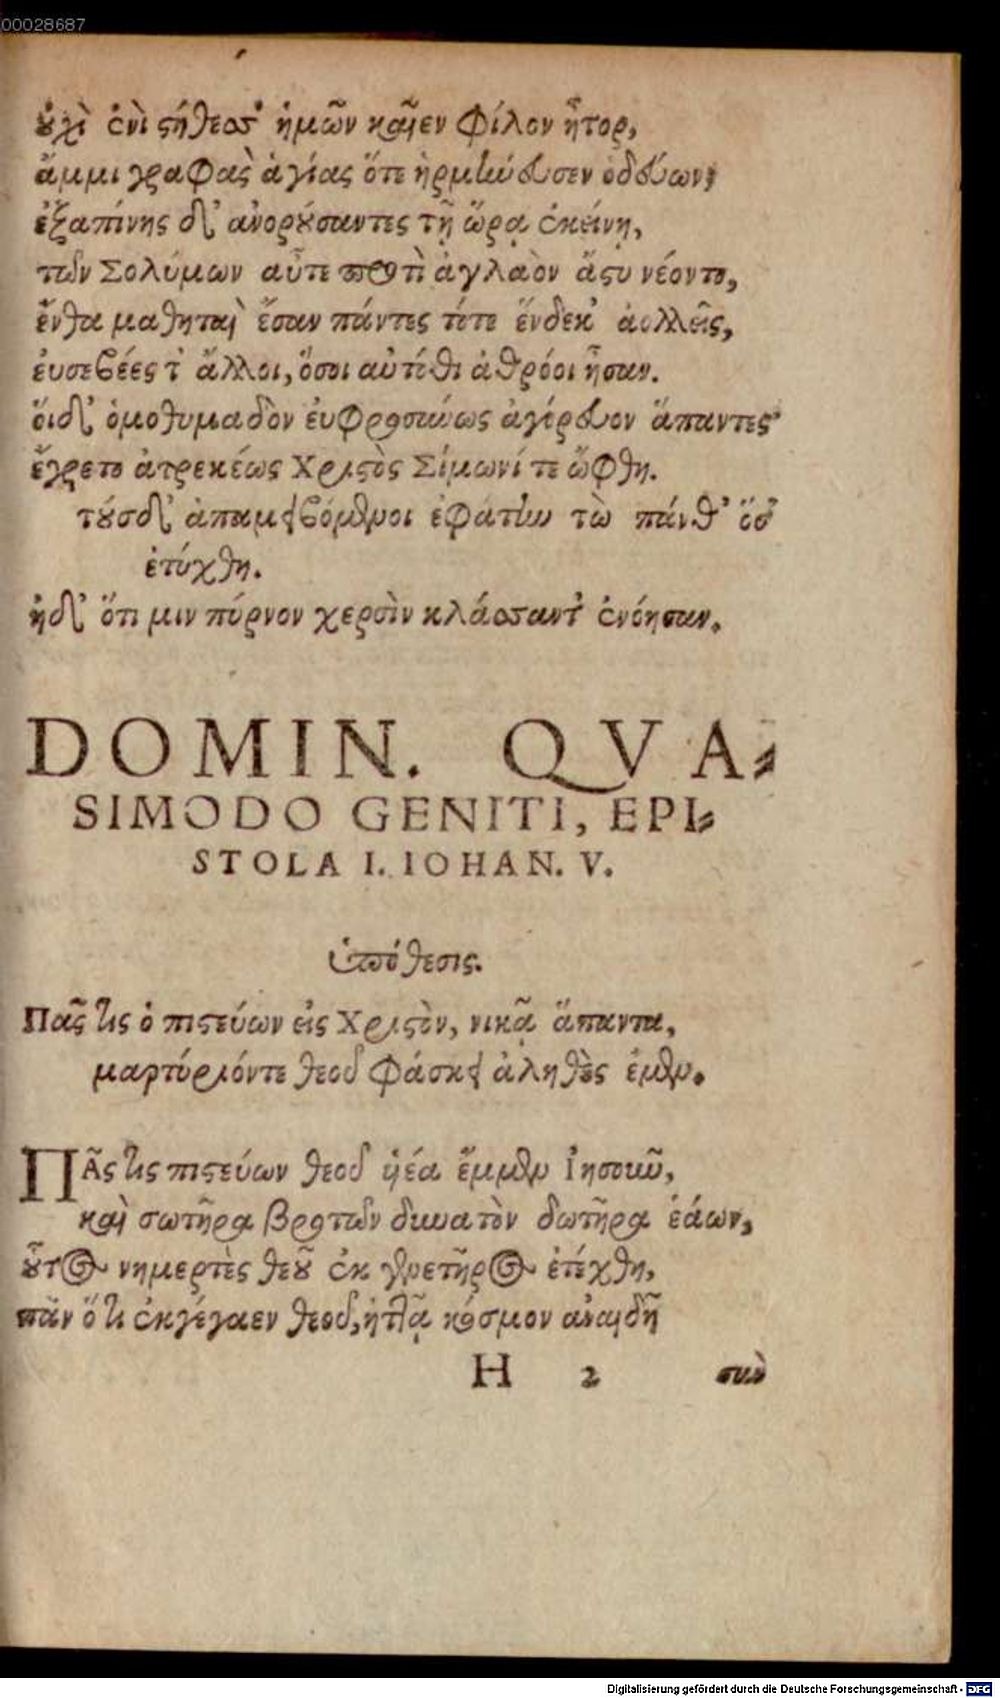 00028687
οὐχὶ ἐνὶ στήθεσσ' ἡμῶν καῖεν φίλον ἦτορ,
ἄμμι γραφὰς ἁγίας ὅτε ἡρμήνευσεν ὁδεύων;
ἐξαπίνης δ' ἀνορούσαντες τῇ ὥρᾳ ἐκείνῃ,
τῶν Σολύμων αὖτε προτὶ ἀγλαὸν ἄστυ νέοντο,
ἔνθα μαθηταὶ ἔσαν πάντες τότε ἕνδεκ' ἀολλεῖς,
ἐυσεβέες τ' ἄλλοι, ὅσοι αὐτόθι ἀθρόοι ἦσαν.
οἵδ' ὁμοθυμαδὸν ἐυφροσύνως ἀγόρευον ἅπαντες·
ἔγρετο ἀτρεκέως Χριστὸς Σίμωνί τε ὤφθη.
τοὺσδ' ἀπαμειβόμενοι ἐφάτην τὼ πάνθ' ὅσ'
ἐτύχθη.
ἠδ' ὅτι μιν πύρνον χερσὶν κλάσσαντ' ἐνόησαν.
DOMIN. QVA-
SIMODO GENITI, EPI-
STOLA I. IOHAN. V.
ὑπόθεσις.
Πᾶς τις ὁ πιστεύων εἰς Χριστὸν, νικᾷ ἅπαντα,
μαρτύριόντε θεοῦ φάσκει ἀληθὲς ἔμεν.
ΠΑ͂ς τις πιστεύων θεοῦ ὑέα ἔμμεν Ἰησοιῶ,
καὶ σωτῆρα βροτῶν δυνατὸν δωτῆρα ἑάων,
οὗτος νημερτὲς θεοῦ ἐκ γενετῆρος ἐτέχθη,
πᾶν ὅτι ἐκγέγαεν θεοῦ, ἡττᾷ κόσμον ἀναιδῆ
H 2 συὺ
Digitalisierung gefördert durch die Deutsche Forschungsgemeinschaft - DFG